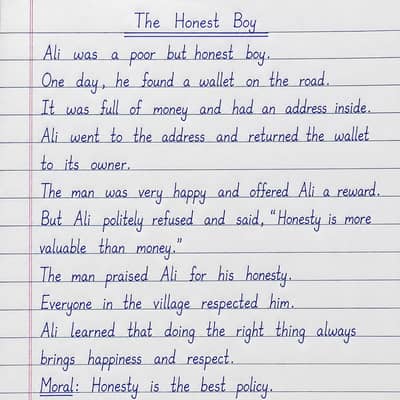 The Honest Boy
Ali was a poor but honest boy.
One day, he found a wallet on the road.
It was full of money and had an address inside.
Ali went to the address and returned the wallet
to its owner.
The man was very happy and offered Ali a reward.
But Ali politely refused and said, “Honesty is more
valuable than money.”
The man praised Ali for his honesty.
Everyone in the village respected him.
Ali learned that doing the right thing always
brings happiness and respect.
Moral: Honesty is the best policy.